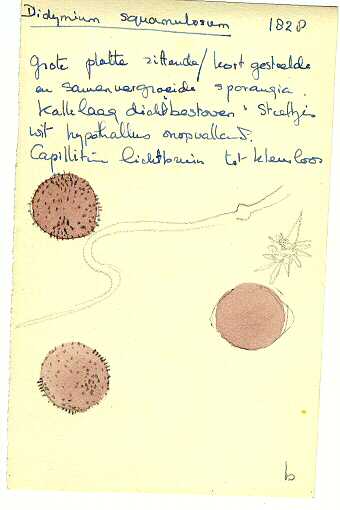 Didymium squamulosum 1828
Grote platte zittende/kort gesteelde
en samenvergroeide sporangia.
Kalklaag dicht bestoven. Steeltjes
wit hypothallus onopvallend.
Capillitium lichtbruin tot kleurloos
b